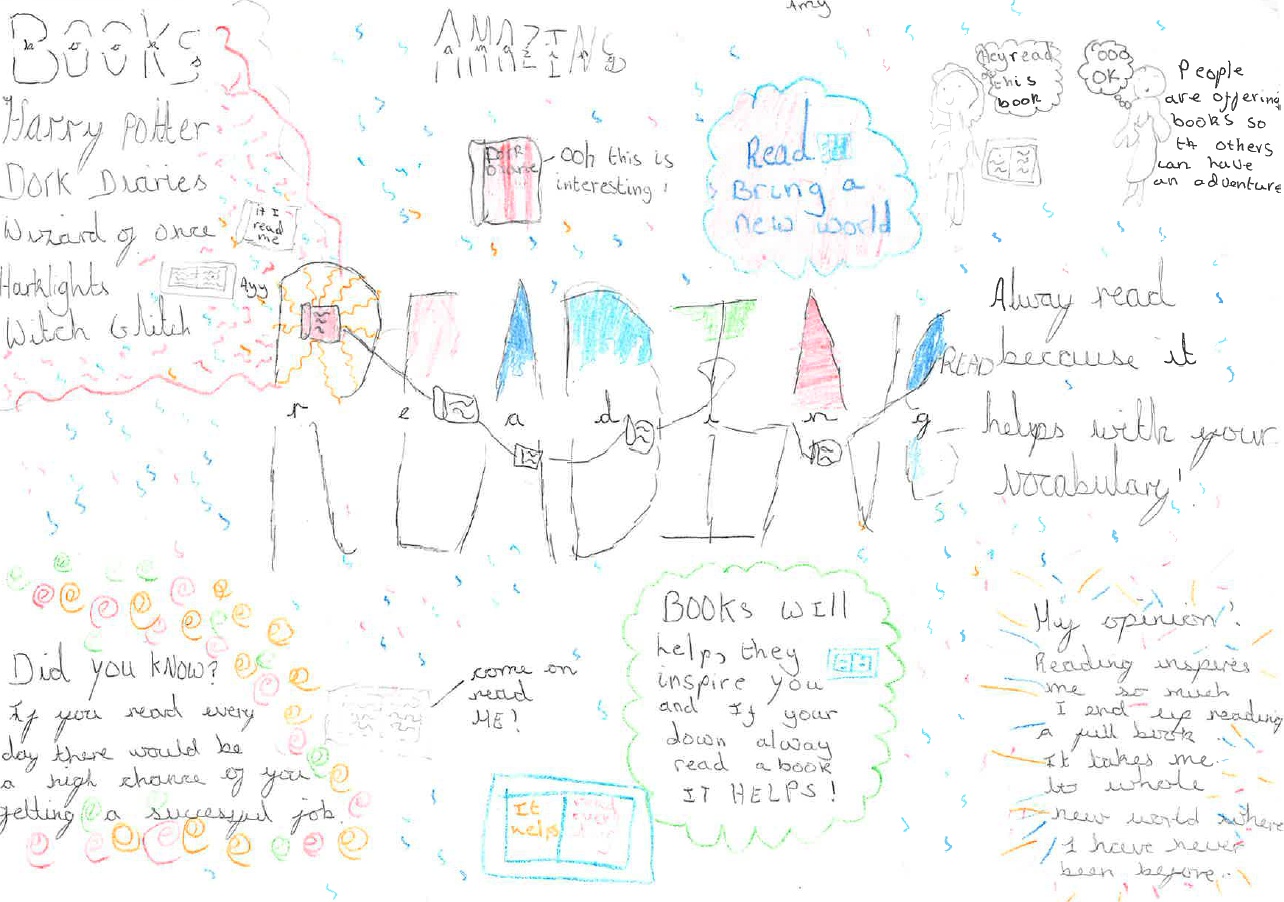 Amy
BOOKS
Harry Potter
Dork Diaries
Wizard of once
Harklights
Witch Glitch
read
me
Ayy
AMAZING
DORK
Ooh this is
interesting!
Read
Bring a
new world
read
this
book
OOO
OK
People
are offering
books so
others
can have
an adventure
reading
READ
Alway read
because it
helps with your
Vocabulary!
Did you know?
If you read every
day there would be
a high chance of you
getting a successful job.
come on
read
ME!
BOOKS WILL
help, they
inspire you
and If your
down alway
read a book
IT HELPS!
It
helps
read
My opinion!
Reading inspires
me so much
I end up reading
a full book
It takes me
to whole
new world where
I have never
been before.